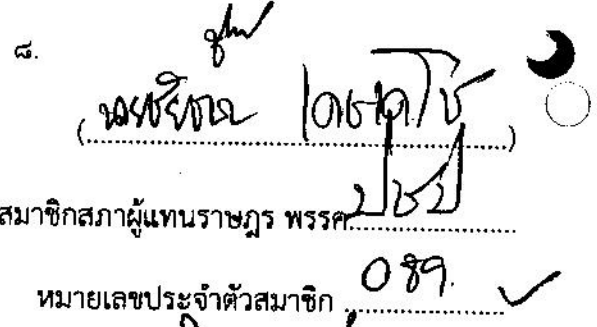 ๘.
(นายชัยชนะ เดชเดโช)
สมาชิกสภาผู้แทนราษฎร พรรค ปชป
หมายเลขประจำตัวสมาชิก 089.